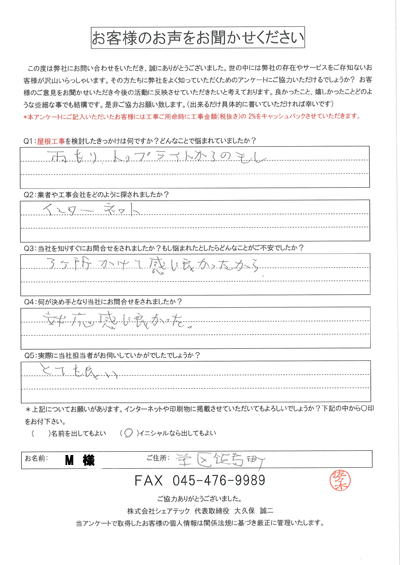 お客様のお声をお聞かせください
この度は弊社にお問い合わせをいただき、誠にありがとうございました。世の中には弊社の存在やサービスをご存知ないお
客様が沢山いらっしゃいます。その方たちに弊社をよく知っていただくためのアンケートにご協力いただけるでしょうか？ お客
様のご意見をお聞かせいただき今後の活動に反映させていただきたいと考えております。良かったこと、嬉しかったことどのよ
うな些細な事でも結構です。是非ご協力お願い致します。（出来るだけ具体的に書いていただければ幸いです）
*本アンケートにご記入いただいたお客様には工事ご用命時に工事金額（税抜き）の 2%をキャッシュバックさせていただきます。
Q1:屋根工事を検討したきっかけは何ですか？どんなことで悩まれていましたか？
雨もり トップライトからのもし
Q2:業者や工事会社をどのように探されましたか？
インターネット
Q3:当社を知りすぐにお問合せをされましたか？もし悩まれたとしたらどんなことがご不安でしたか？
3ヶ所かけて感じ良かったから
Q4:何が決め手となり当社にお問合せをされましたか？
対応感じ良かった。
Q5:実際に当社担当者がお伺いしていかがでしたでしょうか？
とても良い
＊上記についてお願いがあります。インターネットや印刷物に掲載させていただいてもよろしいでしょうか？下記の中から〇印
をお付下さい。
（ ）名前を出してもよい （〇）イニシャルなら出してもよい
お名前: M 様 ご住所: 区 町
FAX 045-476-9989
ご協力ありがとうございました。
株式会社シェアテック 代表取締役 大久保 誠二
当アンケートで取得したお客様の個人情報は関係法規に基づき厳正に管理いたします。